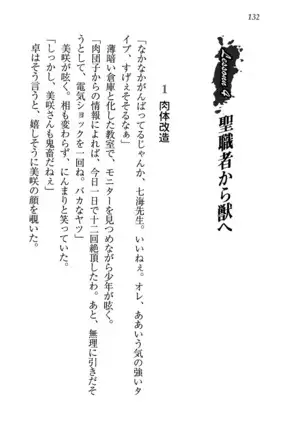 132
Lesson
聖職者から獣へ
1 肉体改造
「なかなかがんばってるじゃんか、七海先生。いいねぇ。オレ、ああいう気の強いタ
イプ、すげぇそそるなぁ」
薄暗い倉庫と化した教室で、モニターを見つめながら少年が呟く。
「肉団子からの情報によれば、今日一日で十二回絶頂したわ。あと、無理に引きだそ
うとして、電気ショックを一回ね。バカなヤツ」
美咲が呟く。相も変わらず、にんまりと笑っていた。
「しっかし、美咲さんも鬼畜だねぇ」
卓はそう言うと、嬉しそうに美咲の顔を覗いた。